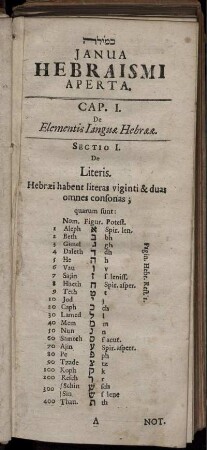 JANUA
HEBRAISMI
APERTA.
CAP. I.
De
Elementis Linguæ Hebrææ.
SECTIO I.
De
Literis.
Hebræi habent literas viginti & duas
omnes consonas;
quarum sunt:
Nom. Figur. Potest.
1 Aleph א Spir. len.
2 Beth ב bh
3 Gimel ג gh
4 Daleth ד dh
5 He ה h
6 Vau ו v
7 Sajin ז ſ leniss.
8 Hheth ח Spir. asper.
9 Teth ט t
10 Jod י j
20 Caph כ ch
30 Lamed ל l
40 Mem מ m
50 Nun נ n
60 Samech ס ſ acut.
70 Ajin ע Spir. asperr.
80 Pe פ ph
90 Tzade צ tz
100 Koph ק k
200 Resch ר r
300 Schin ש sch
Sin ש ſ lene
400 Thau. ת th
A NOT.